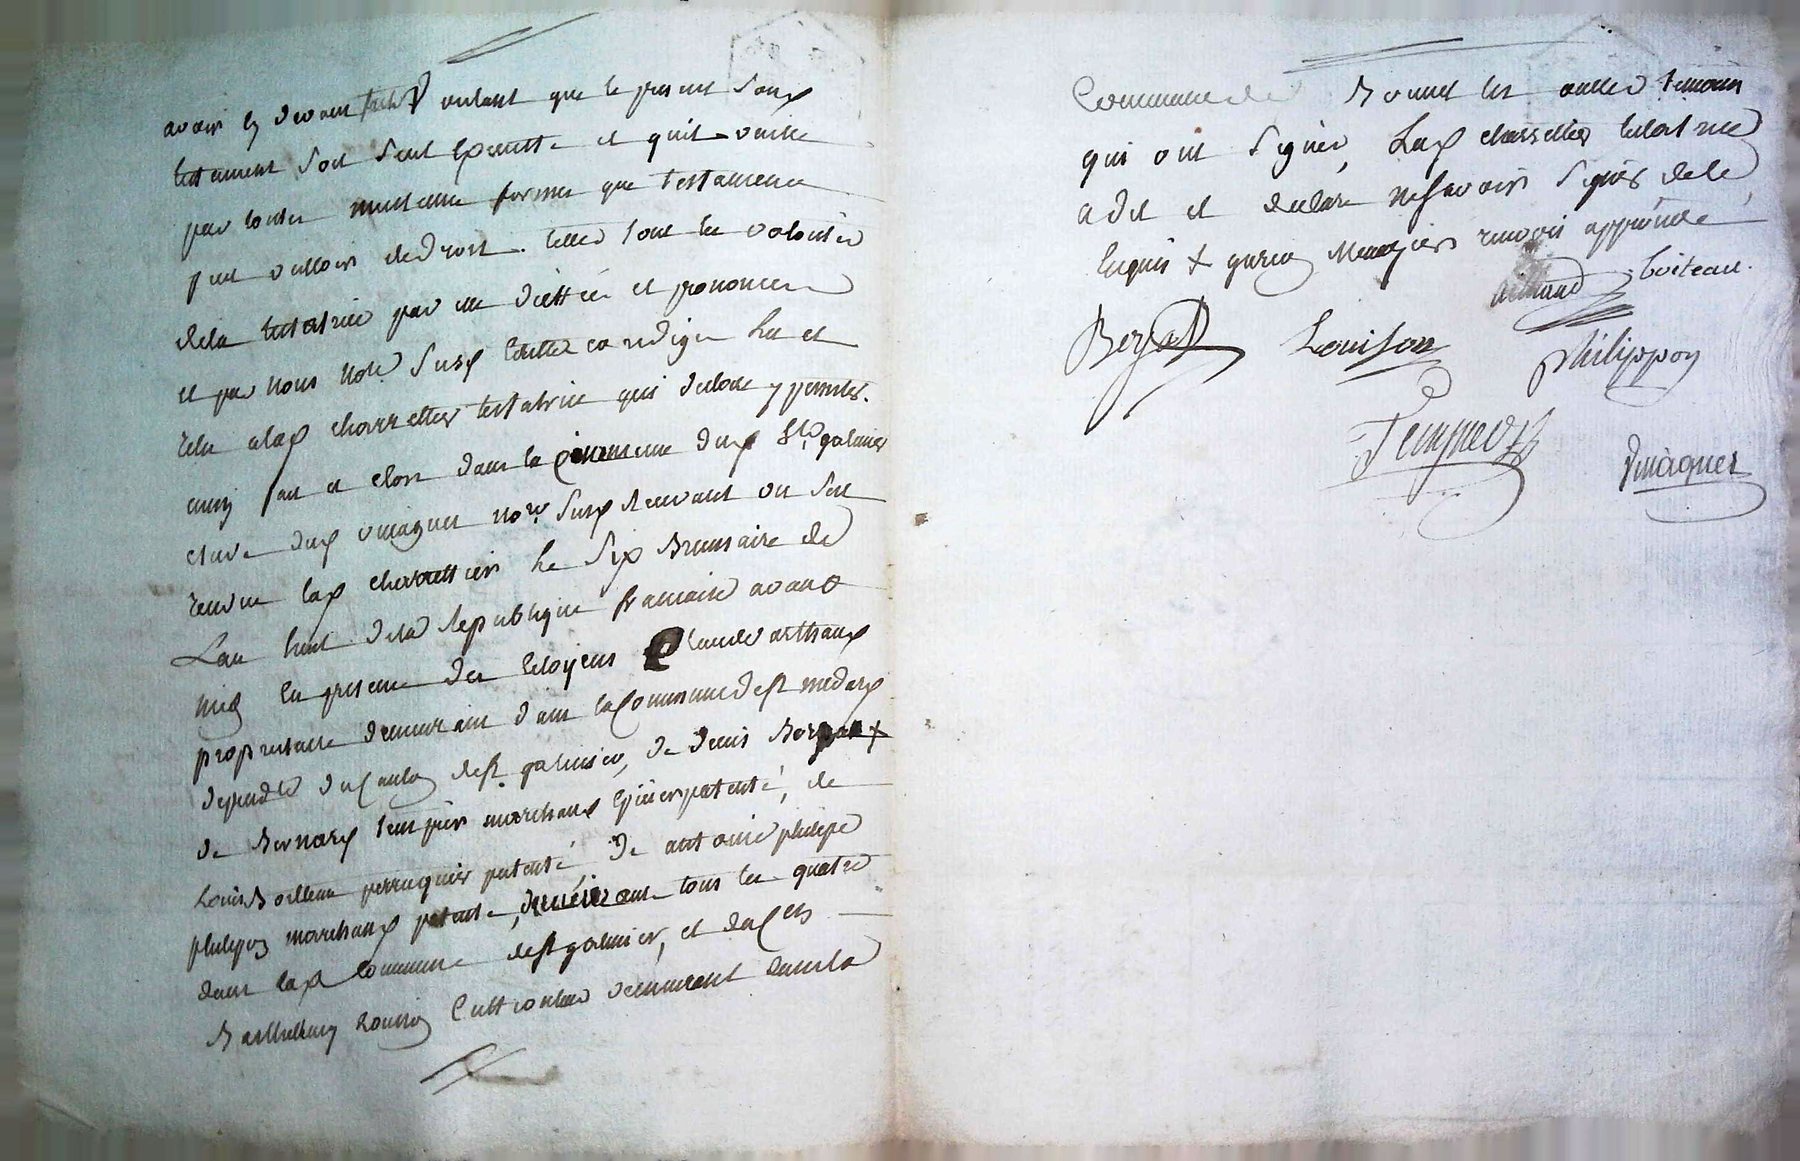 avoir cy devant faits voulant que le present soux
testament soit seul executté et quil vaille
par toutes meilleure forme que testament
peut valloir de droit. telles sont les volontés
de la testatrice par elle dicttées et prononcees
et par nous notre susd redigé lu et
relu a lad charrettier testatrice qui declare y persister.
ainsy fait et clos dans la commune dud St galmier
etude dud vmagnet nore susd recevant ou sest
rendue lad charrettier le six Brumaire de
Lan huit de la republique francaise avant
midy en presence des citoyens Claude arthaud
proprietaire demeurant dans la Commune de st medard
dependte du Canton de st galmier, de denis Boyat x
de Bernard tempier marchand epicier patenté, de
Louis Boitteau perruquier patenté, de antoine philipe
philipon marchand patenté, demeurant tous les quatre
dans lad commune de st galmier, et du Cen
Barthellemy Louison Cultivateur demeurant dans la
Commune de Bonnet les oulles temoin
qui ont signés, Lad charettier testatrice
a dit et declaré ne savoir signer de ce
enquis x renvoi approuvé
Arthaud boiteau.
Boyat Louison philippon
Tempier
Vmagnet